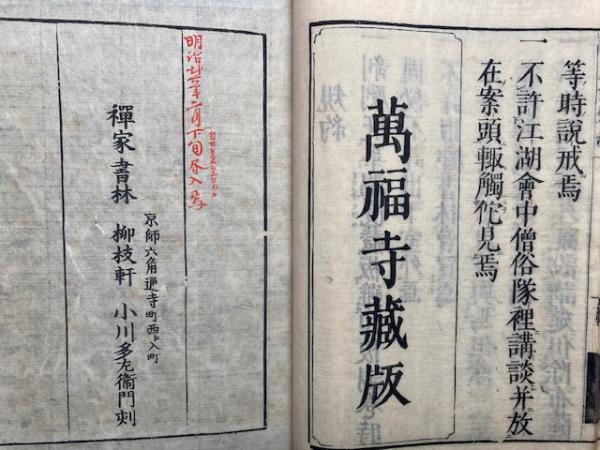 等時說戒焉
一不許江湖會中僧俗隊裡講談并放
在案頭輙觸佗見焉
萬福寺藏版
明治廿三年二月下旬
京師六角通寺町西ヘ入町
禪家書林 柳枝軒 小川多左衞門刻